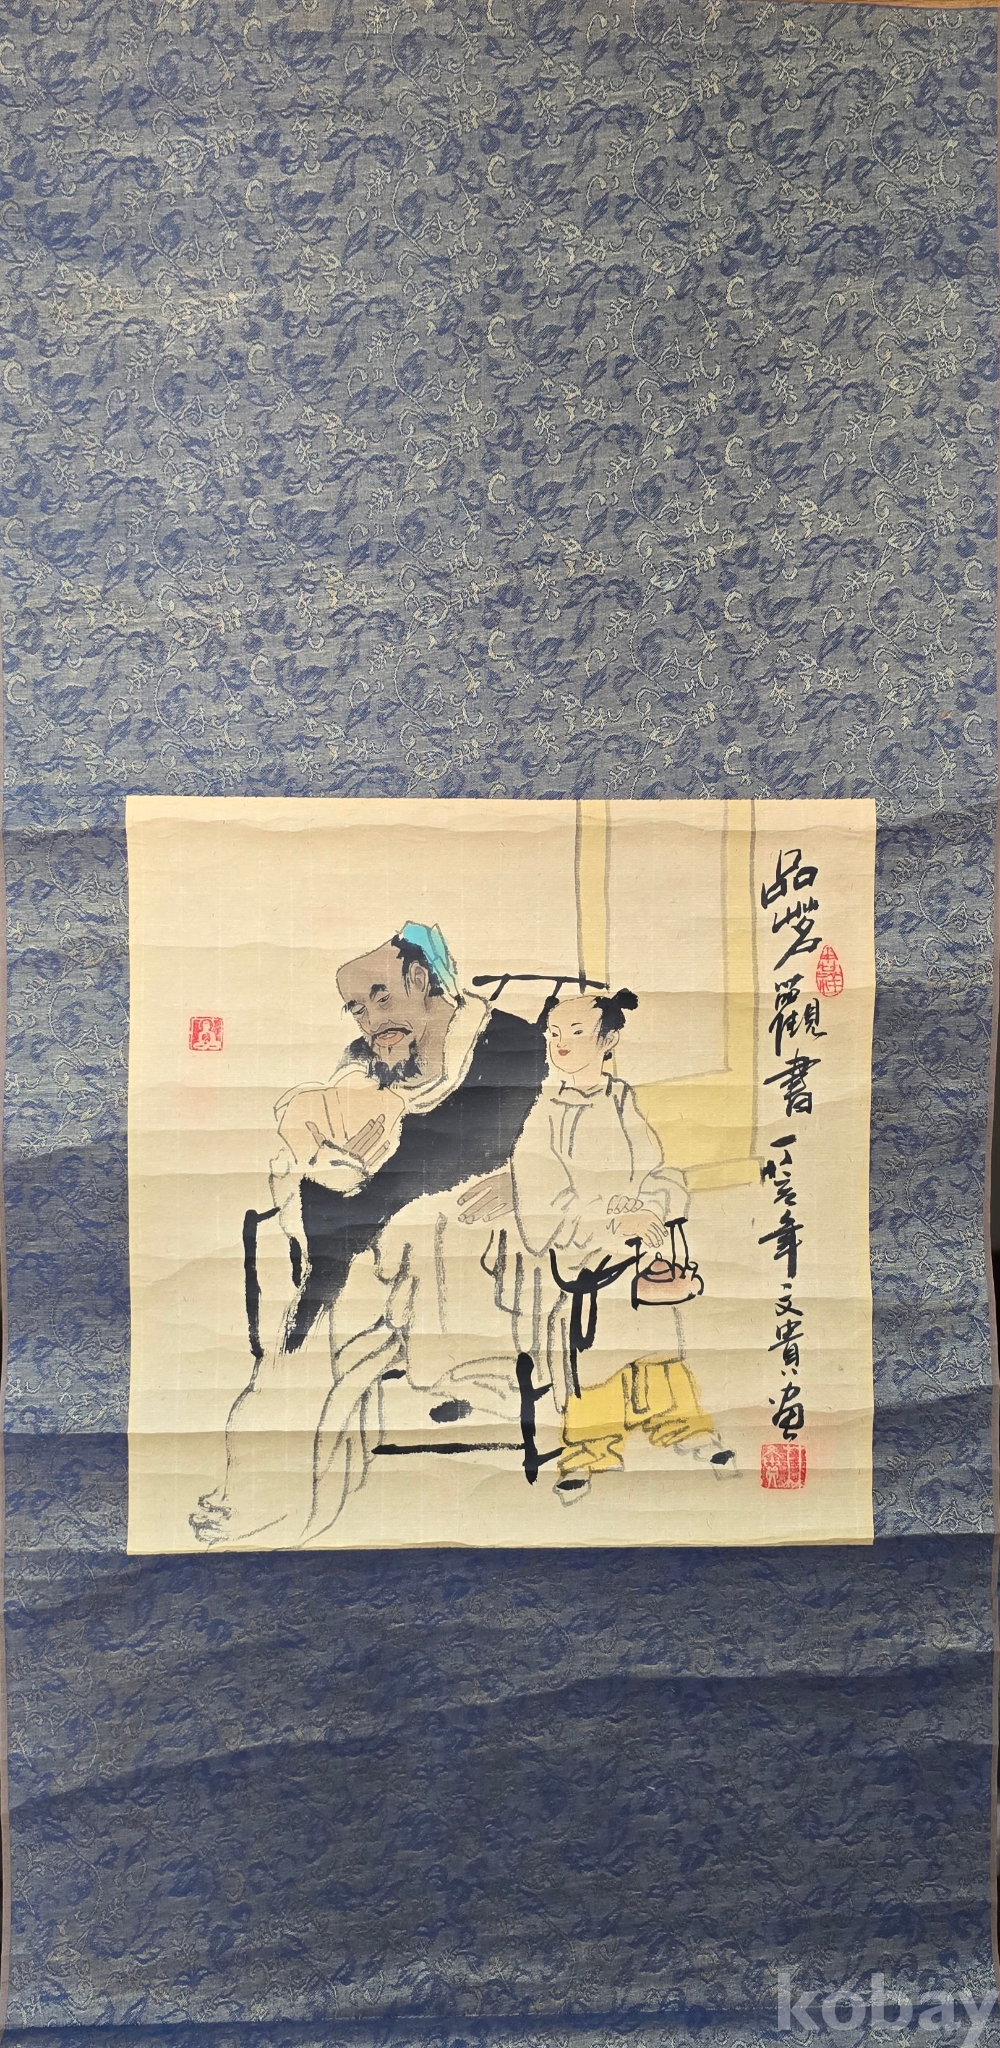 品茗觀書 丁酉年 文貴畫
吉祥
kobay